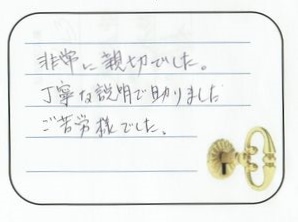 非常に親切でした。
丁寧な説明で助りました
ご苦労様でした、